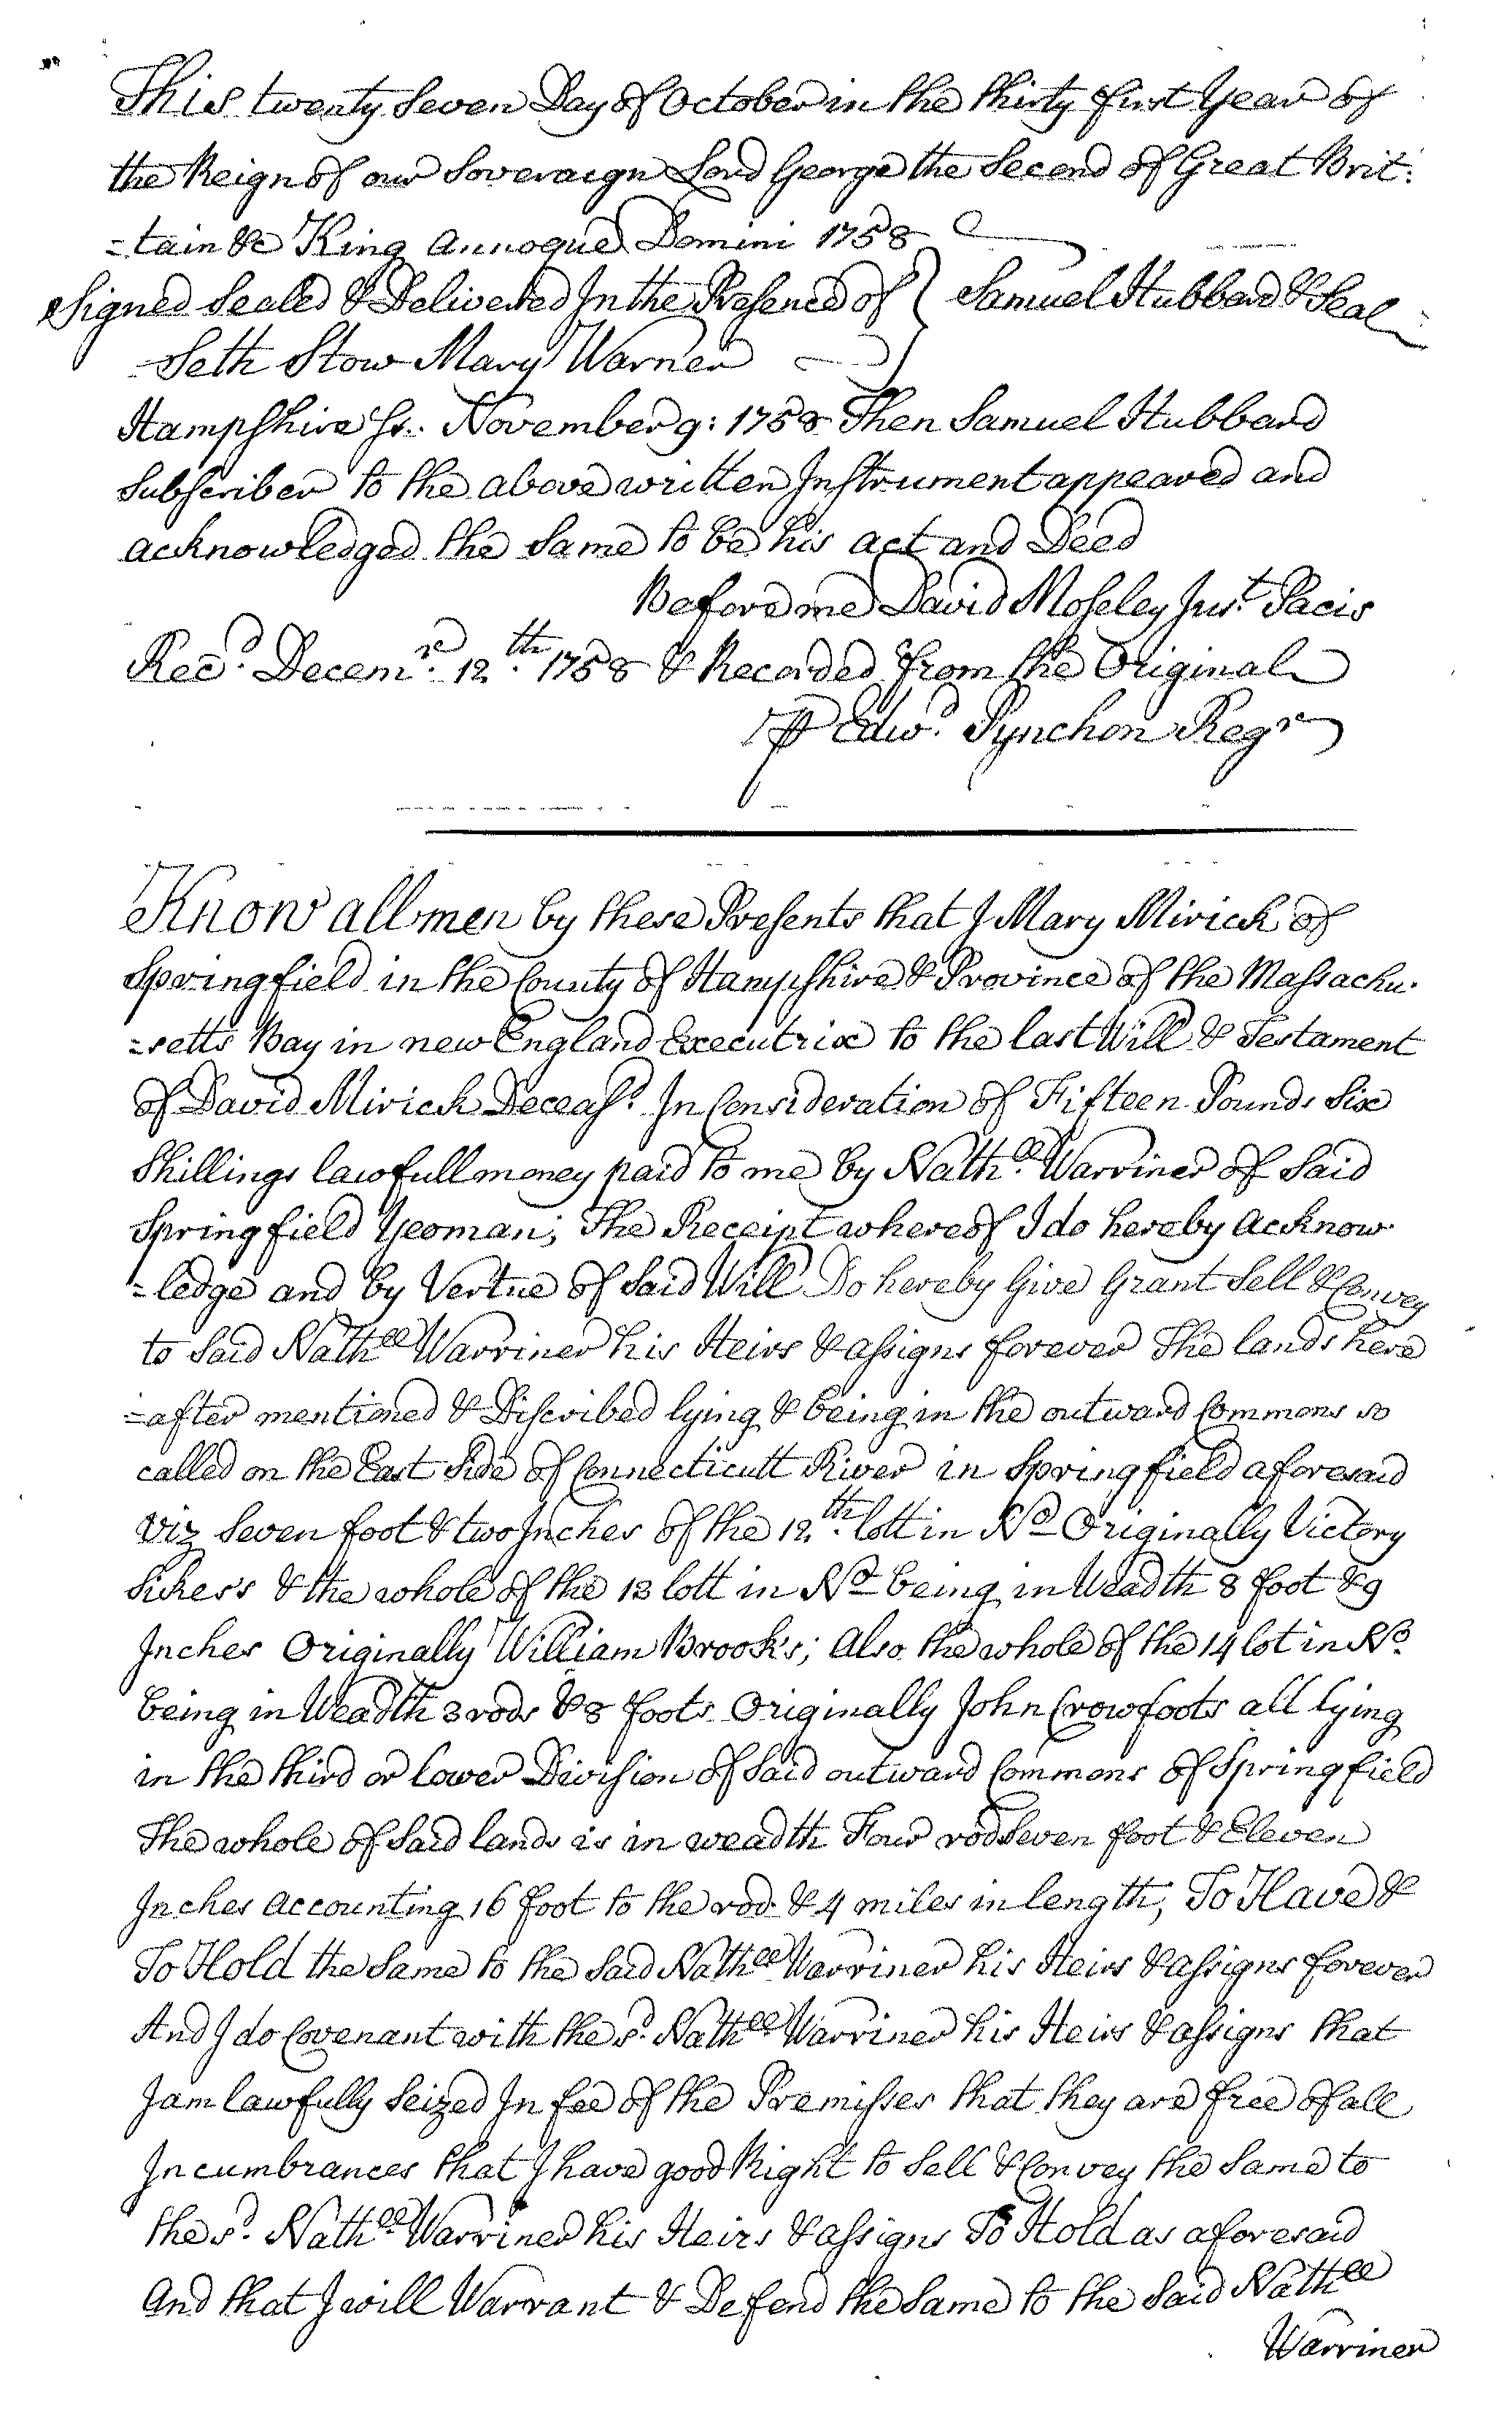 This twenty Seven Day of October in the thirty first Year of
the Reign of our Soveraign Lord George the Second of Great Brit:
=tain &c King Annoque Domini 1758
Signed Sealed & Delivered In the Presence of } Samuel Hubbard & Seal
Seth Stow Mary Warner
Hampshire Ss. November 9: 1758 Then Samuel Hubbard
Subscriber to the above written Instrument appeared and
acknowledged the Same to be his act and Deed
Before me David Moseley Just Pacis
Recd. Decemr. 12th. 1758 & Recorded from the Original
℔ Edwd. Pynchon Regr
Know all men by these Presents that I Mary Mirick of
Springfield in the County of Hampshire & Province of the Massachu-
=setts Bay in new England Executrix to the last Will & Testament
of David Mirick Deceasd. In Consideration of Fifteen Pounds Six
Shillings lawfull money paid to me by Nathll. Warriner of Said
Springfield Yeoman; The Receipt whereof I do hereby acknow-
=ledge and by Vertue of Said Will Do hereby Give Grant Sell & Convey
to Said Nathll Warriner his Heirs & assigns forever The lands here
=after mentioned & Discribed lying & being in the outward Commons so
called on the East Side of Connecticutt River in Springfield aforesaid
Viz Seven foot & two Inches of the 12th. lott in No Originally Victory
Sikes's & the whole of the 13 lott in No being in Weadth 8 foot & 9
Inches Originally William Brooks's; Also the whole of the 14 lot in No.
being in Weadth 3 rods & 8 foots Originally John Crowfoots all lying
in the third or lower Division of Said outward Commons of Springfield
The whole of Said lands is in weadth Four rod Seven foot & Eleven
Inches accounting 16 foot to the rod & 4 miles in length, To Have &
To Hold the Same to the Said Nathll Warriner his Heirs & assigns forever
And I do Covenant with the sd. Nathll Warriner his Heirs & assigns that
I am lawfully Seized In fee of the Premisses that they are free of all
Incumbrances that I have good Right to Sell & Convey the Same to
the sd. Nathll Warriner his Heirs & assigns To Hold as aforesaid
And that I will Warrant & Defend the Same to the Said Nathll
Warriner